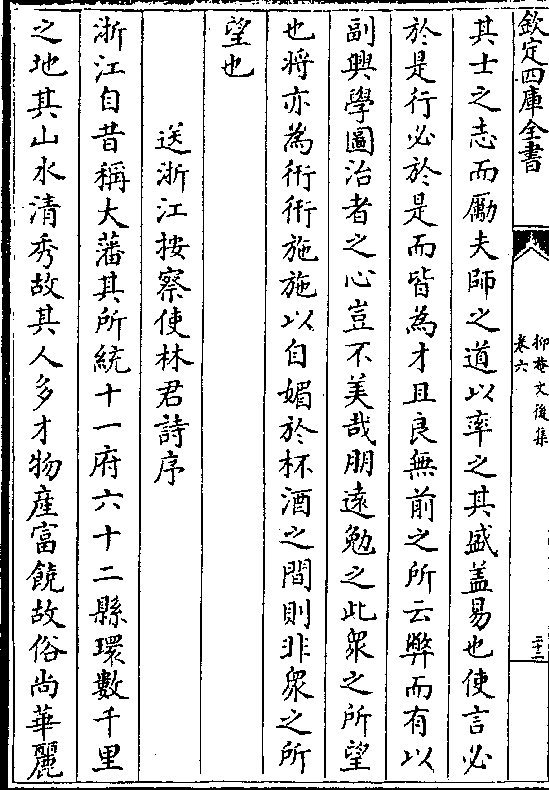 欽定四庫全書
抑菴文後集
卷六
二十二
其士之志而勵夫師之道以率之其盛盖易也使言必
於是行必於是而皆為才且良無前之所云弊而有以
副興學圖治者之心豈不美哉朋遠勉之此衆之所望
也将亦為衎衎施施以自媚於杯酒之間則非衆之所
望也
送浙江按察使林君詩序
浙江自昔稱大藩其所統十一府六十二縣環數千里
之地其山水清秀故其人多才物産富饒故俗尚華麗